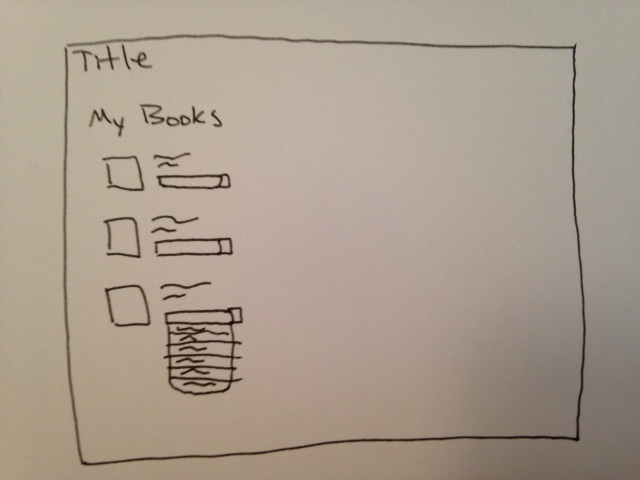 Title
My Books